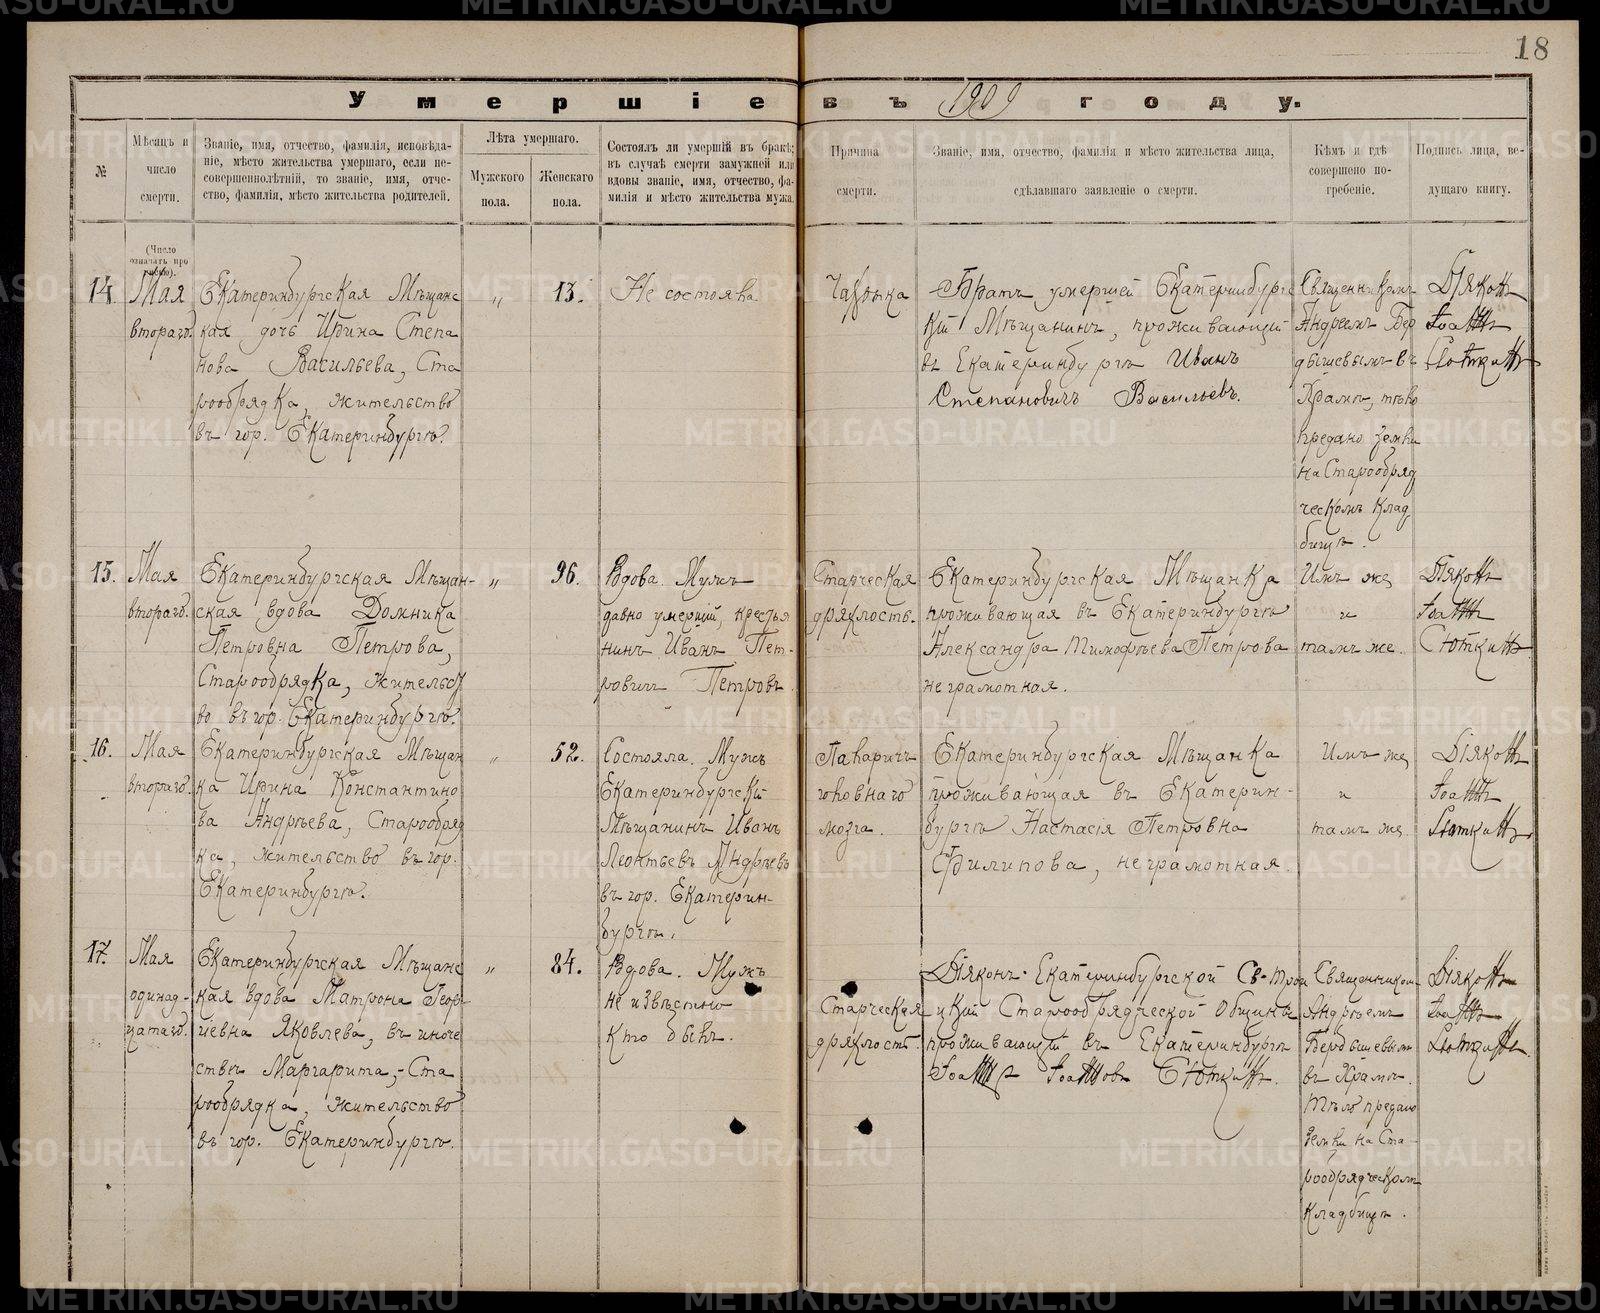 18
Умершіе въ 1909 году.
№
Мѣсяцъ и
число
смерти.
Званіе, имя, отчество, фамилія, исповѣда-
ніе, мѣсто жительства умершаго, если не-
совершеннолѣтній, то званіе, имя, отче-
ство, фамилія, мѣсто жительства родителей.
Лѣта умершаго.
Мужского
пола.
Женскаго
пола.
Состоялъ ли умершій въ бракѣ;
въ случаѣ смерти замужней или
вдовы званіе, имя, отчество, фа-
милія и мѣсто жительства мужа.
Причина
смерти.
Званіе, имя, отчество, фамилія и мѣсто жительства лица,
сдѣлавшаго заявленіе о смерти.
Кѣмъ и гдѣ
совершено по-
гребеніе.
Подпись лица, ве-
дущаго книгу.
(Число
означать про
писью).
14
Мая
втораго.
Екатеринбургская Мѣщанс
кая дочь Ирина Степа
нова Васильева, Ста
рообрядка, жительство
въ гор. Екатеринбургѣ.
"
13.
Не состояла
Чахотка
Братъ умершей Екатеринбургс
кій Мѣщанинъ, проживающій
въ Екатеринбургѣ Иванъ
Степановичъ Васильевъ.
Священникомъ
Андреемъ Бер
дышевымъ въ
Храмѣ, тѣло
предано земли
на Старообряд
ческомъ клад
бищѣ.
Діяконъ
Іоаннъ
Сюткинъ
15.
Мая
втораго.
Екатеринбургская Мѣщан-
ская вдова Домника
Петровна Петрова,
Старообрядка, жительст
во въ гор. Екатеринбургѣ.
"
96.
Вдова. Мужъ
давно умерший, крестья
нинъ Иванъ Пет-
ровичъ Петровъ.
Старческая
дряхлость.
Екатеринбургская Мѣщанка
проживающая въ Екатеринбургѣ
Александра Тимофѣева Петрова
неграмотная.
Имъ же
и
тамъ же.
Діяконъ
Іоаннъ
Сюткинъ
16.
Мая
втораго.
Екатеринбургская Мѣщан
ка Ирина Константино
ва Андрѣева, Старообряд
ка, жительство въ гор.
Екатеринбургѣ.
"
52.
Состояла. Мужъ
Екатеринбургскій
Мѣщанинъ Иванъ
Леонтьевъ Андрѣевъ
въ гор. Екатерин-
бургѣ.
Параличъ
головнаго
мозга.
Екатеринбургская Мѣщанка
проживающая въ Екатерин-
бургѣ Настасія Петровна
Филипова, неграмотная.
Имъ же
и
тамъ же
Діяконъ
Іоаннъ
Сюткинъ.
17.
Мая
одинад-
цатаго.
Екатеринбургская Мѣщанс
кая вдова Матрона Геор-
гіевна Яковлева, въ иноче
ствѣ Маргарита, - Ста
рообрядка, жительство
въ гор. Екатеринбургѣ.
"
84.
Вдова. Мужъ
не извѣстно
кто былъ.
Старческая
дряхлость.
Діяконъ Екатеринбургской Св-Трои
цкій Старообрядческой Общины
проживающій въ Екатеринбургѣ
Іоаннъ Іоанновъ Сюткинъ.
Священником
Андрѣемъ
Бердышевымъ
въ Храмѣ.
Тѣло предано
земли на Ста-
рообрядческомъ
кладбищѣ.
Діяконъ
Іоаннъ
Сюткинъ.